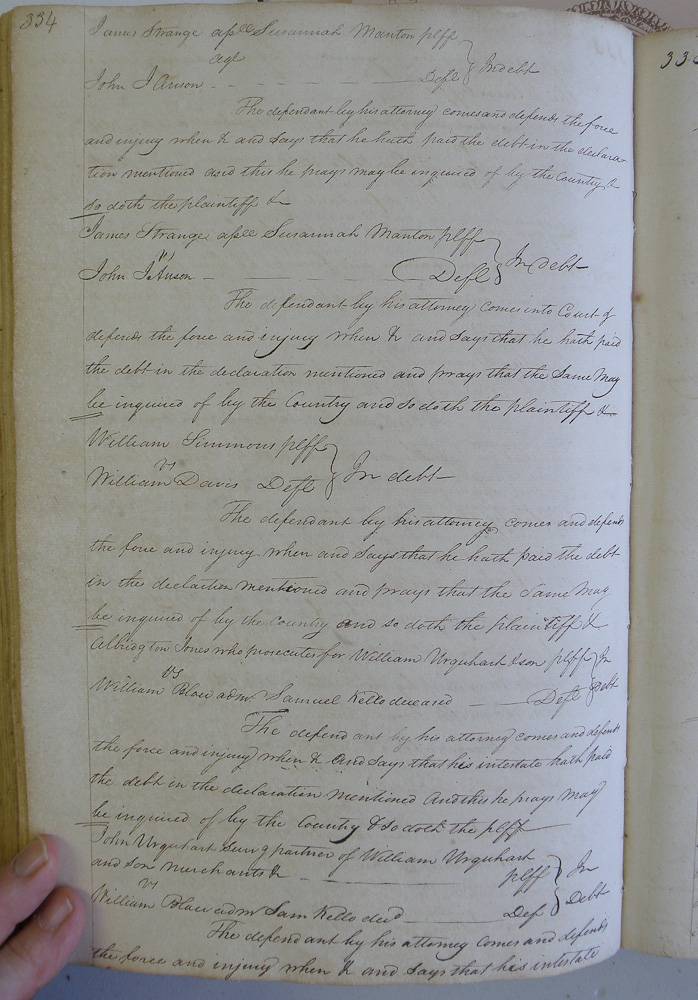 334
James Strange assee Susannah Manton plff
agt } In debt
John I Anson - - - - Deft
The defendant by his attorney comes and defends the force
and injury when &c and says that he hath paid the debt in the declara-
tion mentioned and this he prays may be inquired of by the Country &
so doth the plaintiff &c
James Strange assee Susannah Manton plff
vs } In debt
John I Anson - - - Deft
The defendant by his attorney comes into Court &
defends the force and injury when &c and says that he hath paid
the debt in the declaration mentioned and prays that the Same may
be inquired of by the Country and so doth the plaintiff &c
William Simmons plff
vs } In debt
William Davis Deft
The defendant by his attorney comes and defends
the force and injury when and says that he hath paid the debt
in the declartion mentioned and prays that the Same may
be inquired of by the Country and so doth the plaintiff &c
Albridgton Jones who prosecutes for William Urquhart & son plff } In
vs
William Blow admr Samuel Kello deceased — Deft } Debt
The defendant by his attorney comes and defends
the force and injury when &c and says that his intestate hath paid
the debt in the declaration mentioned and this he prays may
be inquired of by the Country & so doth the plff
John Urquhart Survg partner of William Urquhart
and son merchants &c — plff } In
vs
William Blow admr Sam Kello decd — Def } Debt
The defendant by his attorney comes and defends
the force and injury when &c and says that his intestate
33